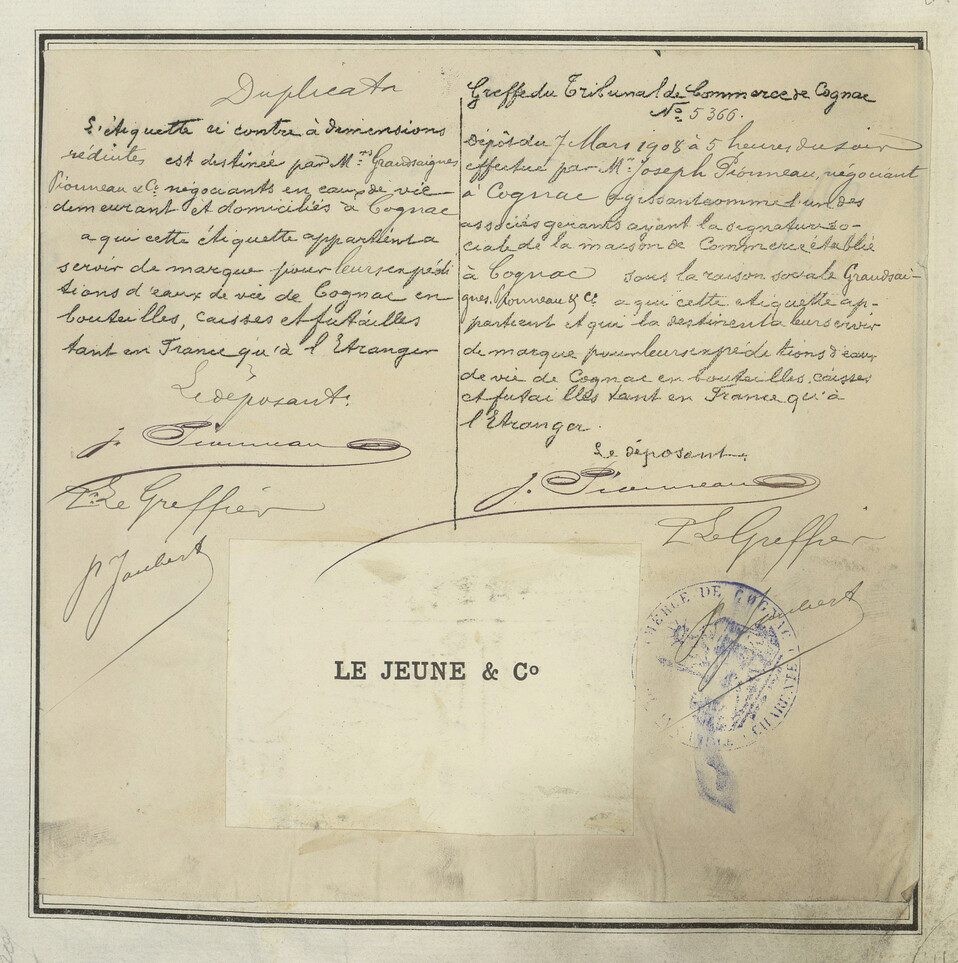 Duplicata
L'étiquette ci contre à dimensions
réduites est destinée par M.rs Grandsaignes
Pionneau & Cº négociants en eaux de vie
demeurant et domiciliés à Cognac
a qui cette étiquette appartient a
servir de marque pour leurs expédi
tions d'eaux de vie de Cognac en
bouteilles, caisses et futailles
tant en France qu'à l'Etranger
Le déposant.
J. Pionneau
P. Le Greffier
P Joubert
Greffe du Tribunal de Commerce de Cognac
Nº 5366.
Dépôt du 7 Mars 1908 à 5 heures du soir
effectué par Mr. Joseph Pionneau, négociant
à Cognac agissant comme l'un des
associés gérants ayant la signature so-
ciale de la maison de Commerce établie
à Cognac sous la raison sociale Grandsai-
gnes, Pionneau & Cº a qui cette étiquette ap-
partient et qui la destinent a leur servir
de marque pour leurs expéditions d'eaux
de vie de Cognac en bouteilles, caisses
et futailles tant en France qu'à
l'Etranger.
Le déposant.
J. Pionneau
P Le Greffier
P Joubert
LE JEUNE & Cº
COMMERCE DE COGNAC
CHARENTE